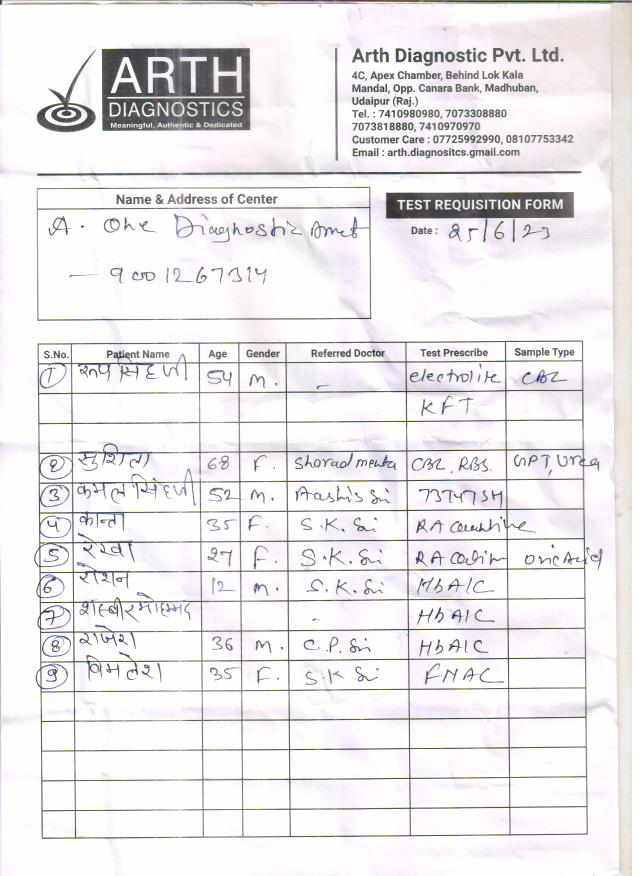 ARTH
DIAGNOSTICS
Meaningful, Authentic & Dedicated
Arth Diagnostic Pvt. Ltd.
4C, Apex Chamber, Behind Lok Kala
Mandal, Opp. Canara Bank, Madhuban,
Udaipur (Raj.)
Tel. : 7410980980, 7073308880
7073818880, 7410970970
Customer Care : 07725992990, 08107753342
Email : arth.diagnositcs.gmail.com
Name & Address of Center
A. One Diagnostic Amet
— 9001267314
TEST REQUISITION FORM
Date : 25/6/23
S.No. Patient Name Age Gender Referred Doctor Test Prescribe Sample Type
1 रूप सिंहजी 54 M. - electrolite CBC
KFT
2 सुशिला 68 F. Sharad menta CBC, RBS. GPT, Urea
3 कमल सिंहजी 52 M. Aashis Sir T3T4TSH
4 कान्ता 35 F. S.K. Sir RA
5 रेखा 27 F. S.K. Sir RA Uric Acid
6 रोशन 12 M. S.K. Sir HbA1C
7 शब्बीर मोहम्मद - HbA1C
8 राजेश 36 M. C.P. Sir HbA1C
9 विमलेश 35 F. S.K Sir FNAC